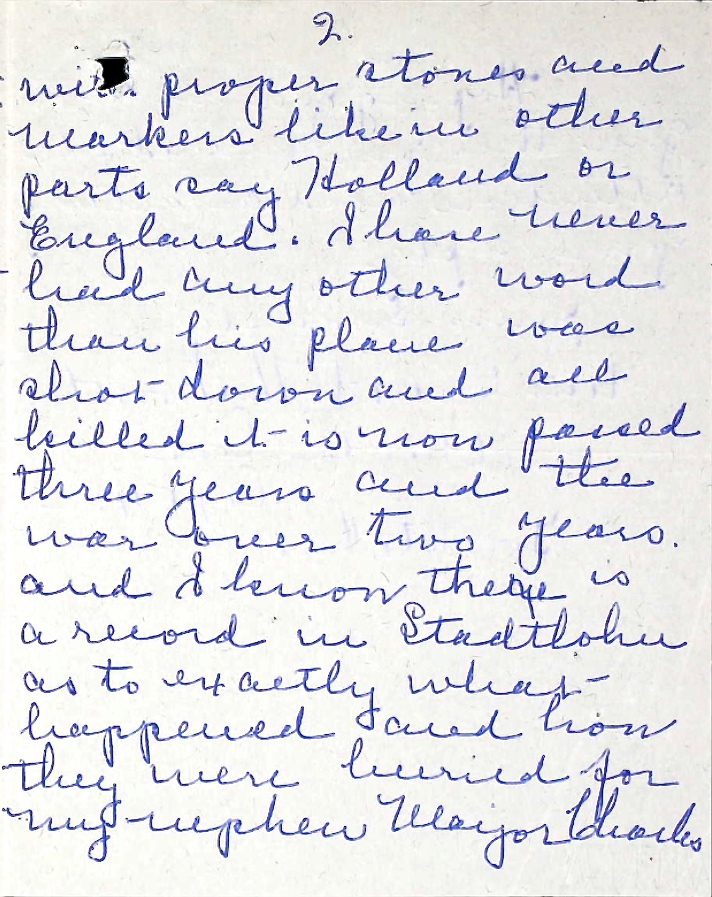 2.
with proper stones and
markers like in other
parts say Holland or
England. I have never
had any other word
than his plane was
shot down and all
killed it is now passed
three years and the
war over two years.
and I know there is
a record in Stadtlohn
as to exactly what
happened and how
they were buried for
my nephew Major Charles